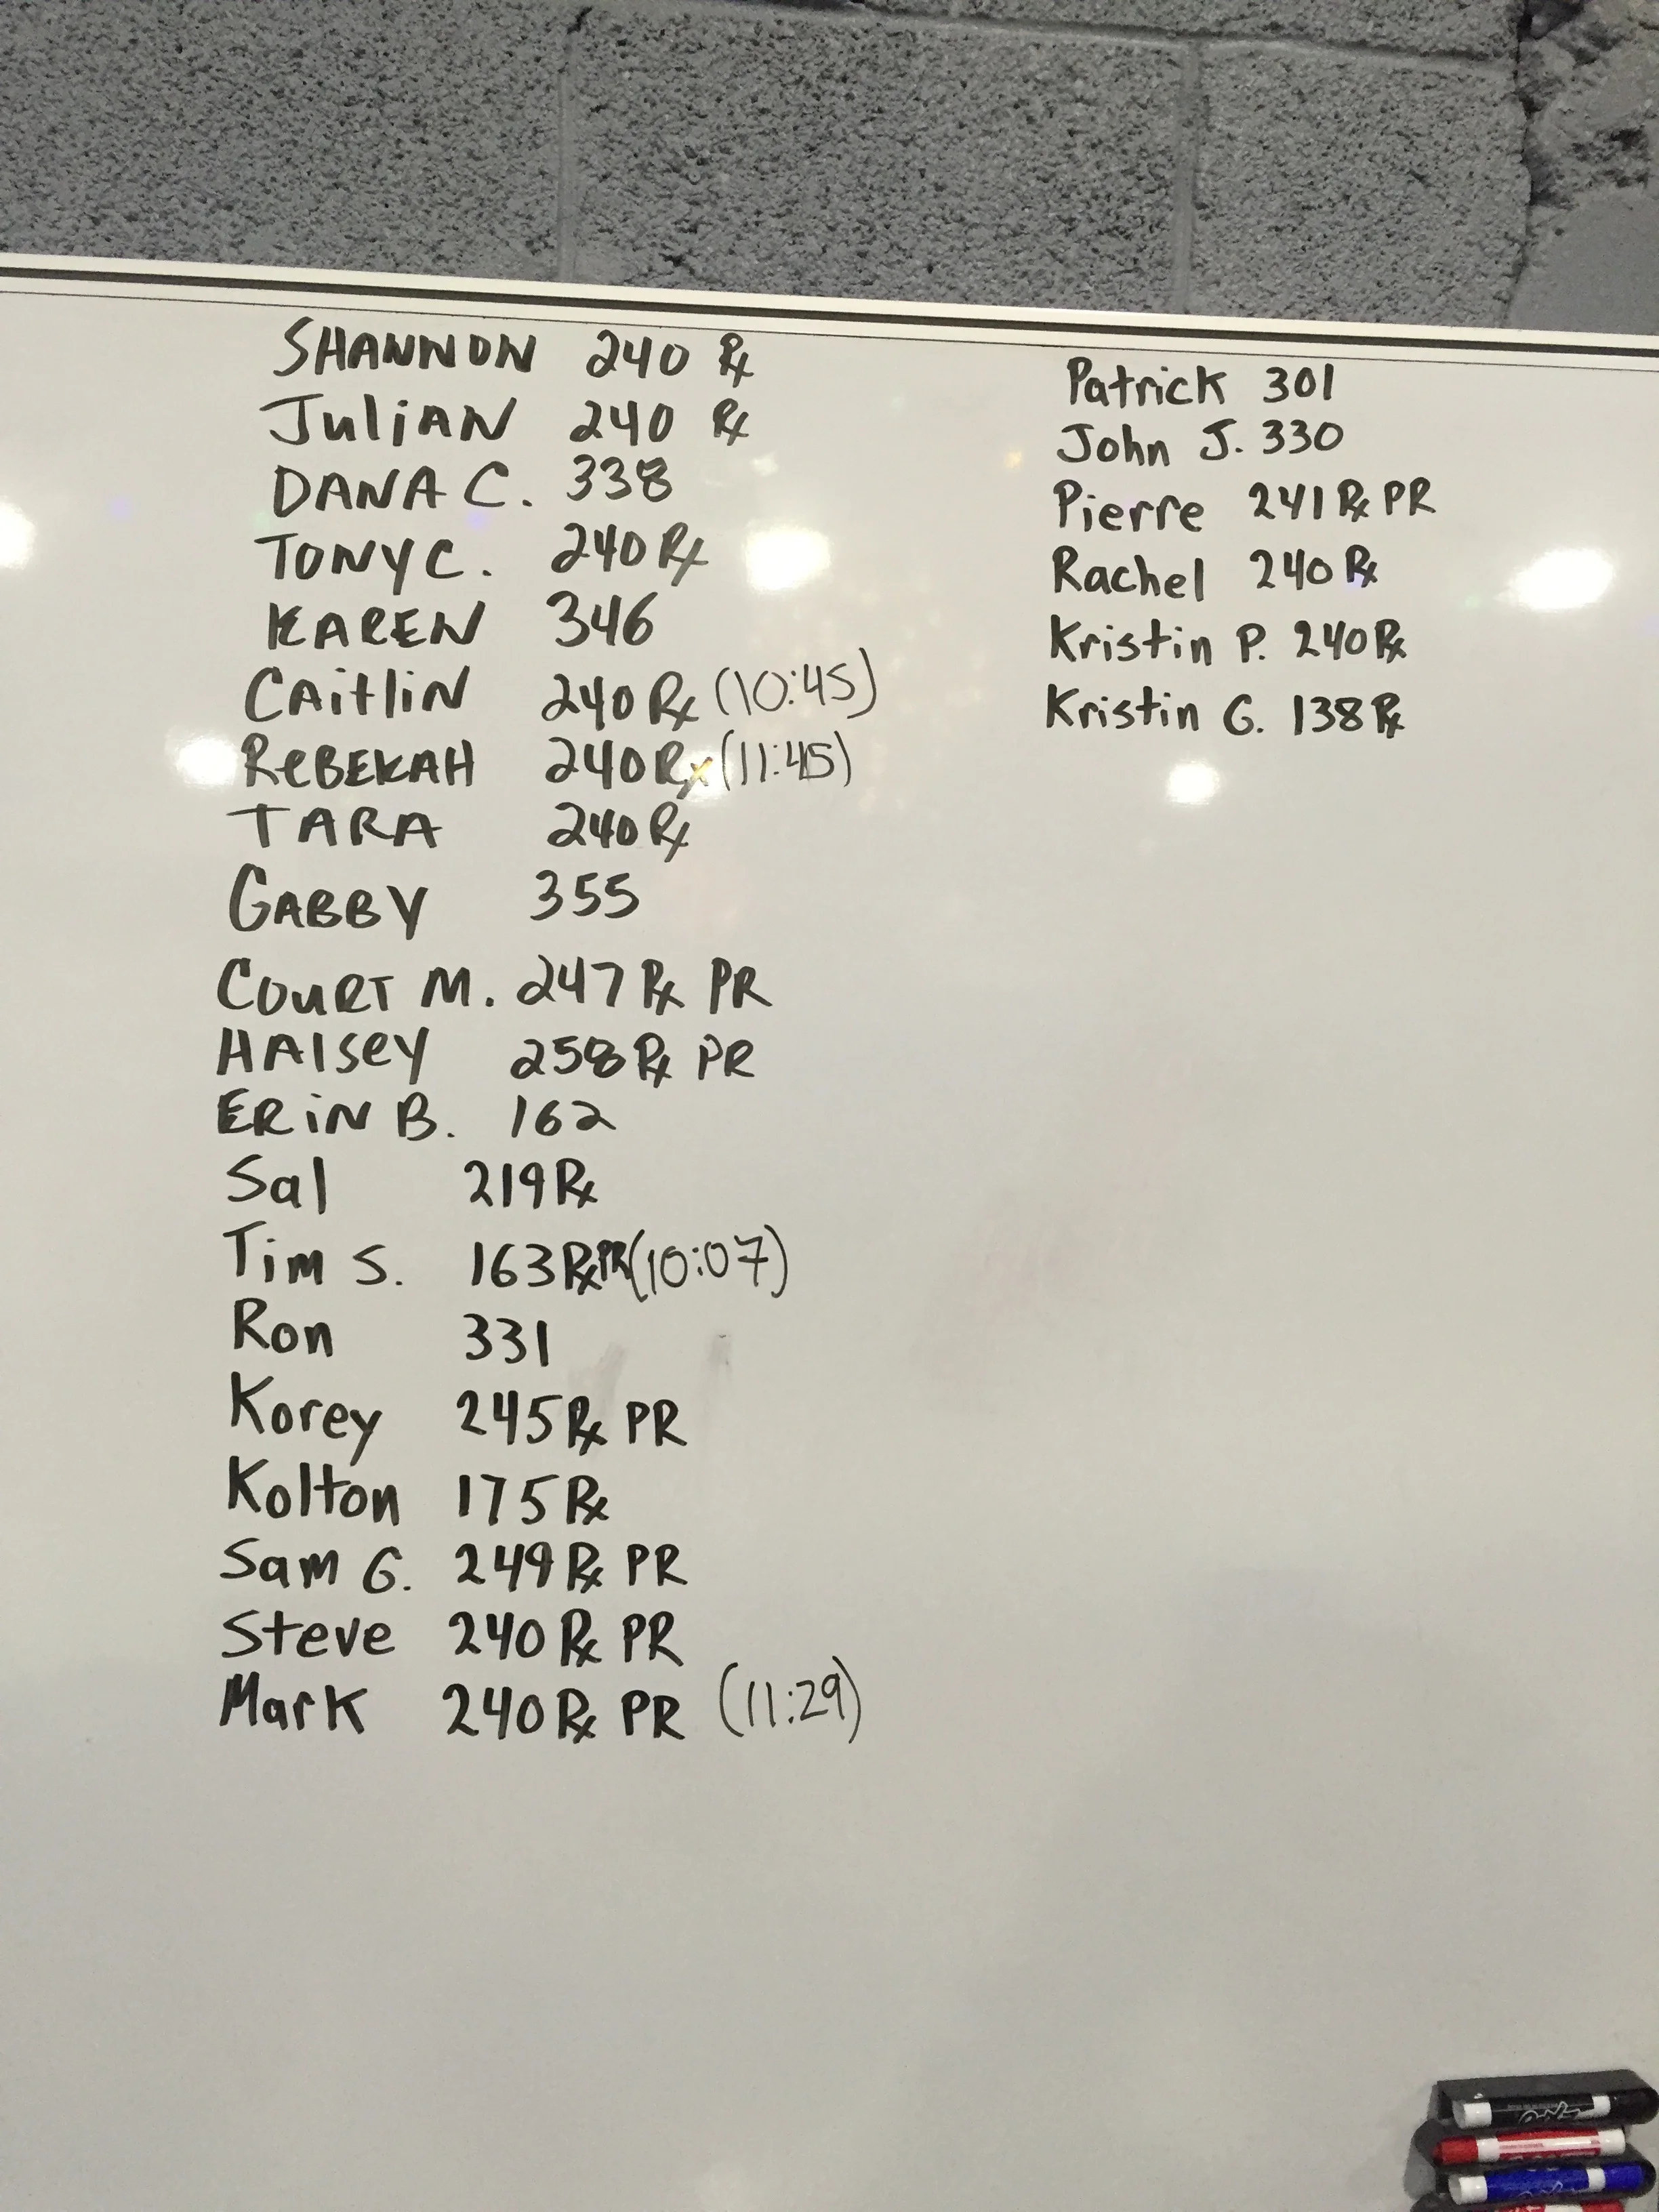 SHANNON 240 Rx
JuliAN 240 Rx
DANA C. 338
TONY C. 240 Rx
KAREN 346
CAitlin 240 Rx (10:45)
ReBEKAH 240 Rx (11:45)
TARA 240 Rx
GABBY 355
COuRT M. 247 Rx PR
HAlsey 258 Rx PR
ERiN B. 162
Sal 219 Rx
Tim S. 163 Rx PR (10:07)
Ron 331
Korey 245 Rx PR
Kolton 175 Rx
Sam G. 249 Rx PR
Steve 240 Rx PR
Mark 240 Rx PR (11:29)
Patrick 301
John J. 330
Pierre 241 Rx PR
Rachel 240 Rx
Kristin P. 240 Rx
Kristin G. 138 Rx